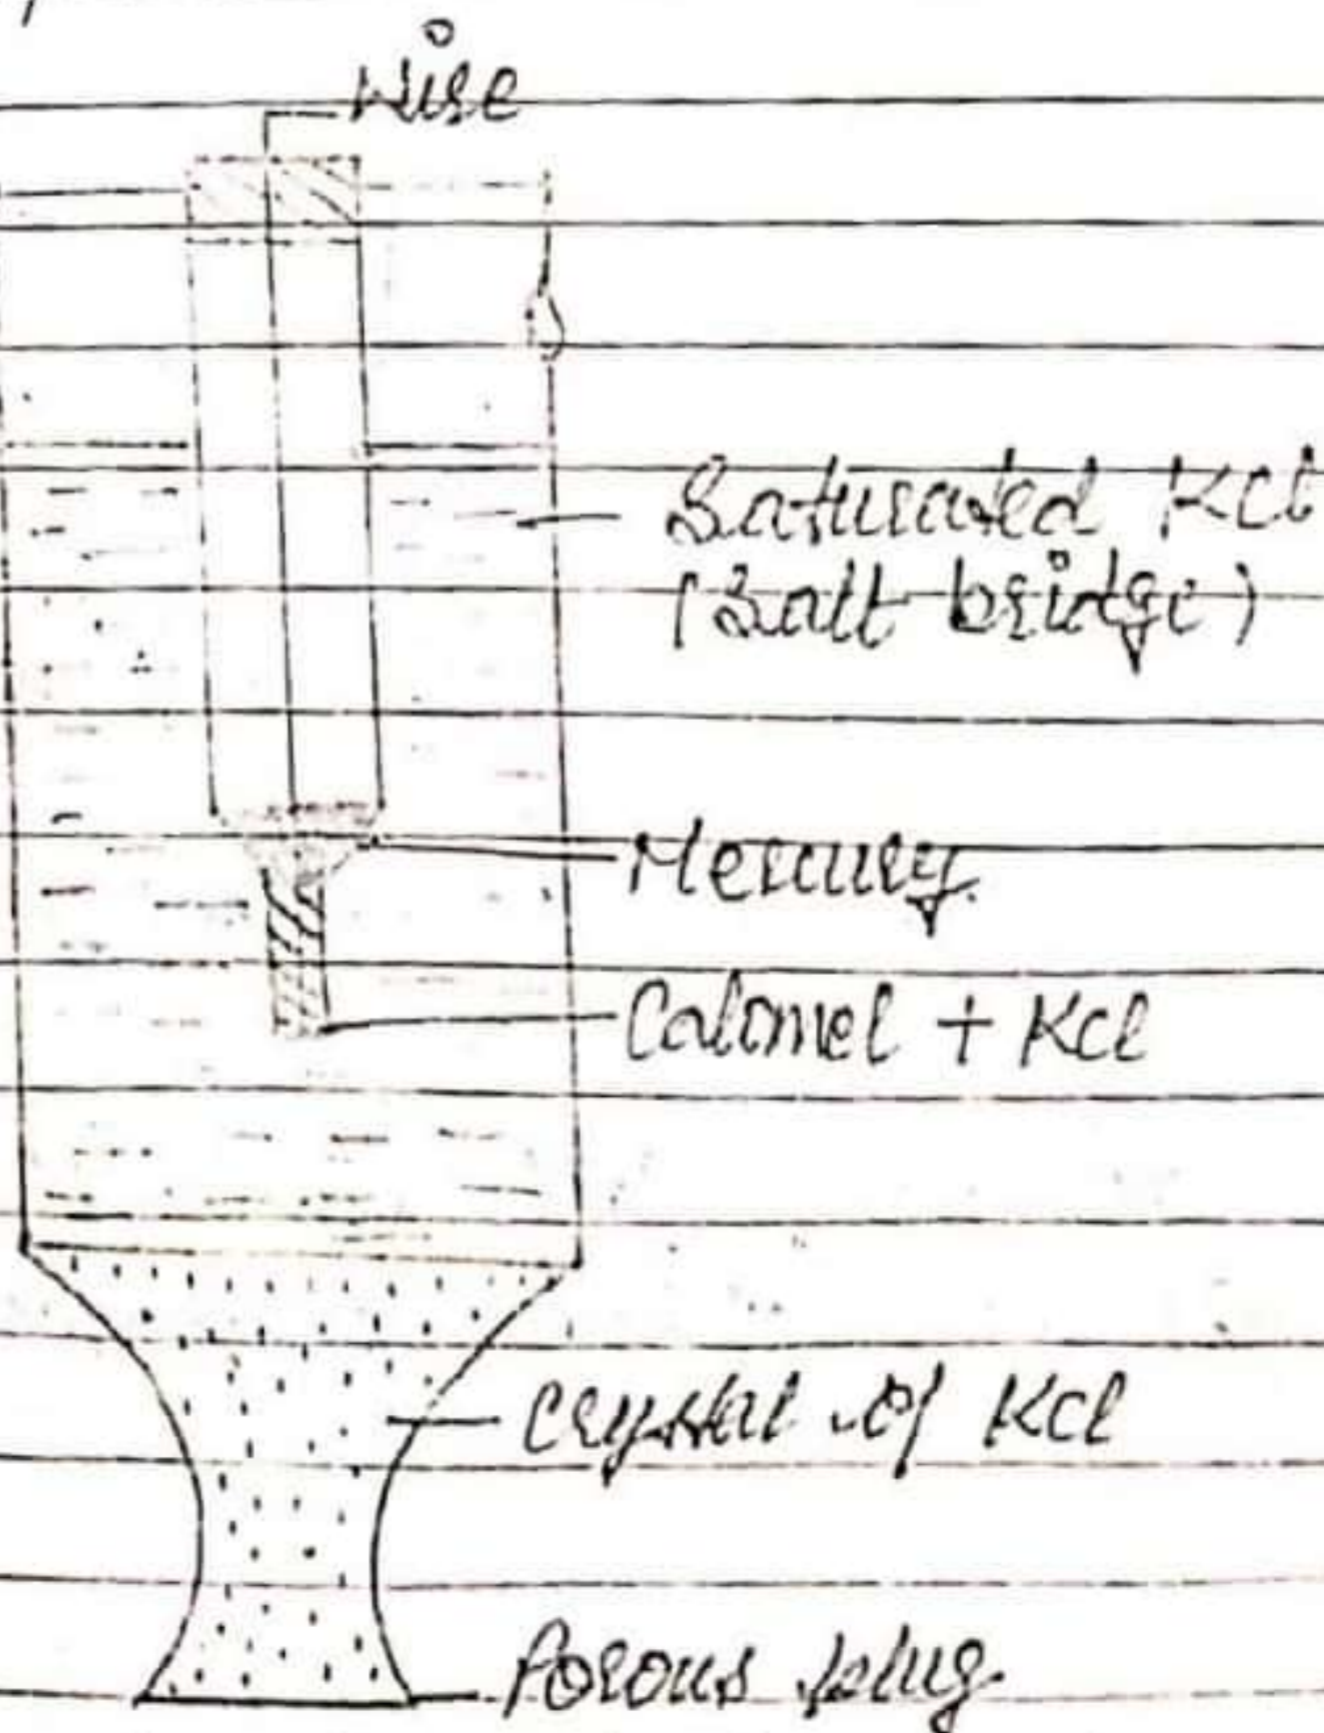 Wire
Saturated KCl
(Salt bridge)
Mercury
Calomel + KCl
Crystal of KCl
Porous plug